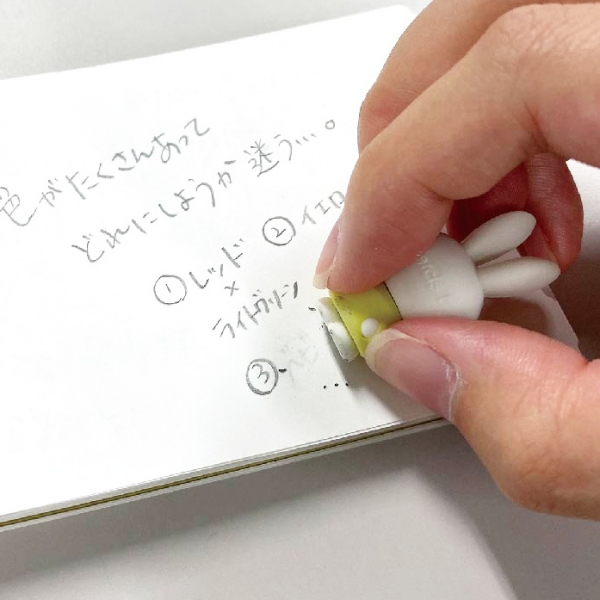 色がたくさんあって
どれにしようか迷う…。
①レッド
×
ライトグリーン
②イエロ
③